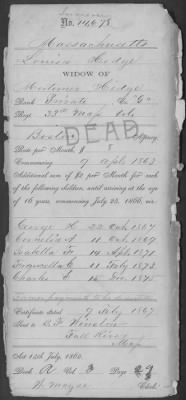 No. 74,673
Massachusetts
Louisa Hedge
WIDOW OF
Mortimer Hedge
Rank Private Co "G"
Reg. 33rd Mass Vols
Boston Agency.
DEAD
Rate per Month, $ 8
Commencing 9 Apl 1863
Additional sum of $2 per Month for each
of the following children, until arriving at the age
of 16 years, commencing July 25, 1866, viz:
George H. 22 Oct. 1867
Cornelia A. 11 Oct. 1869
Isabella F. 14 Apl. 1871
11 July 1873
Charles 1875
Certificate dated 9 July 1867
Sent to
Fall River
Mass
Act 14th July, 1862.
Book A Vol. 3 Page
Clerk.